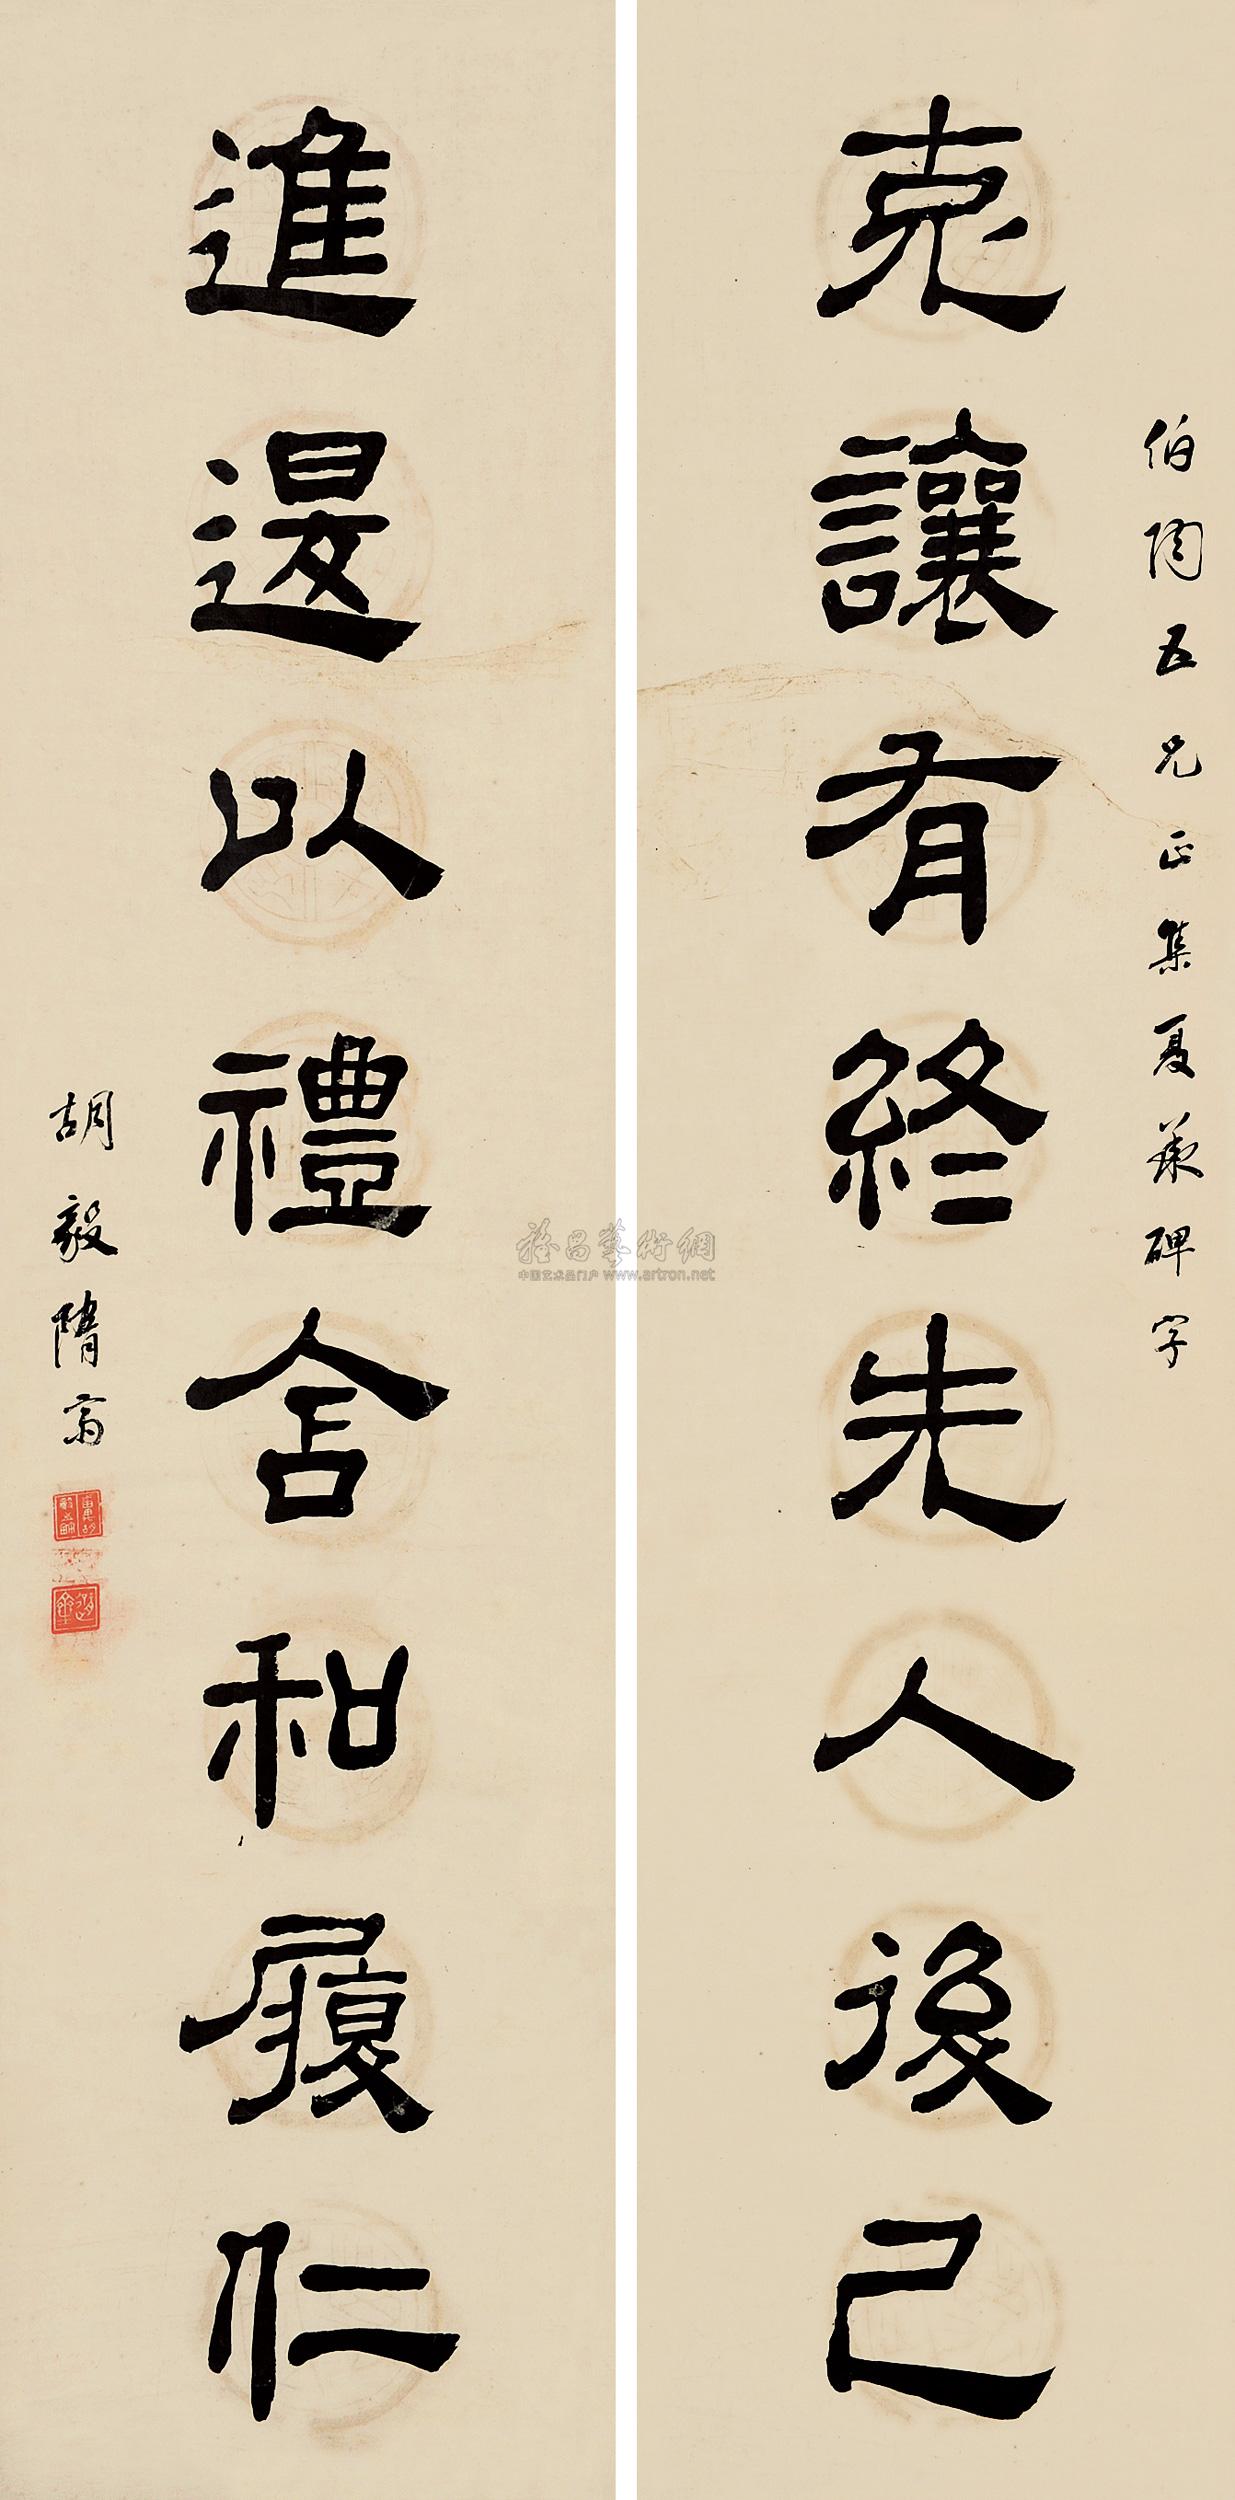 伯陶五兄正集夏承碑字
克讓有終先人後己
進退以禮含和履仁
胡毅隋翁
雅昌藝術網
中国艺术品门户 www.artron.net